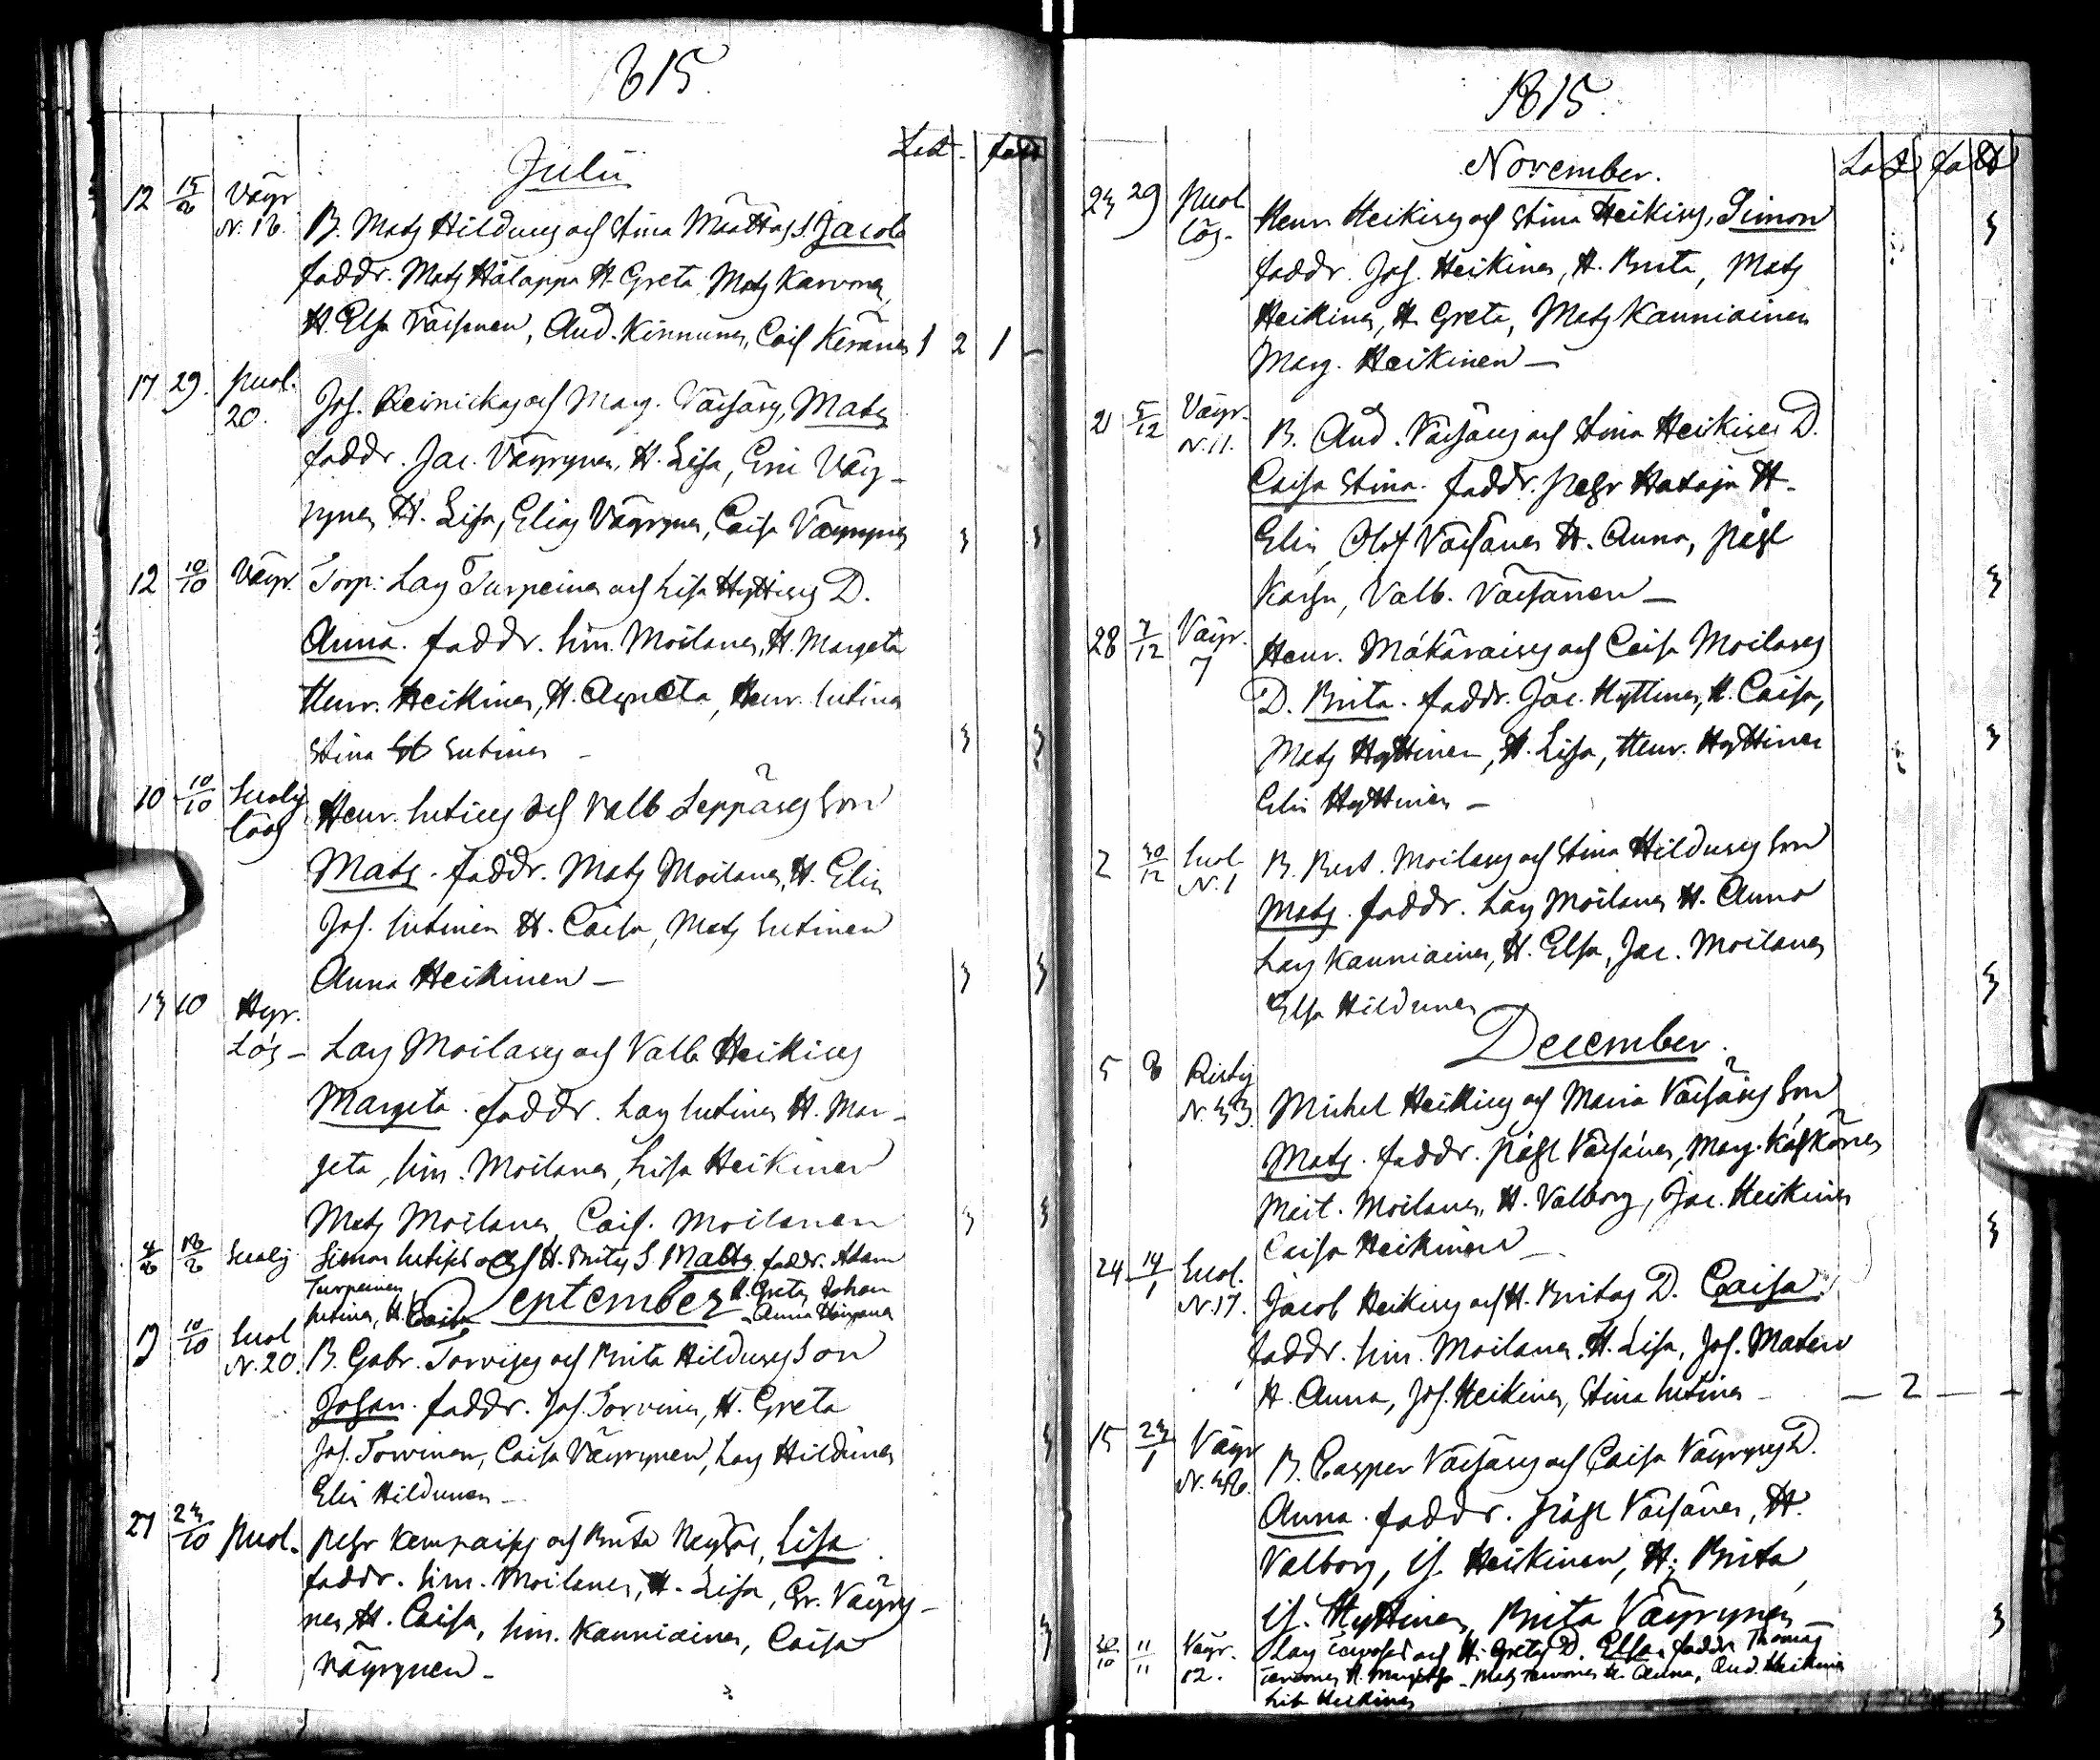 815.
Julii
12 15/8 Väyr N. 16. B. Matz Hilduns och Stina Määttäs S. Jacob
faddr. Matz Hälappä H. Greta, Matz Karvonen,
H. Elsa Väisänen, And. Kinnunen, Cais. Keränen 1 2 1 -
17 29. Puol. 20. Joh. Reinickas och Marg. Väisäns, Mats
faddr. Jac. Väyrynen, H. Lisa, Eric Väy-
rynen H. Lisa, Elias Väyrynen, Caisa Väyrynen 3 3
12 10/10 Väyr. Torp: Lars Turpeinen och Lisa Hyttines D.
Anna. faddr. Sim. Moilanen, H. Margeta
Henr. Heikinen, H. Agneta, Henr. Sutinen
Stina Sutinen - 3 3
10 10/10 Suolij Lös Henr. Sutines och Valb Leppäns Son
Mats. faddr. Mats Moilanen, H. Elin
Joh. Sutinen H. Caisa, Matz Sutinen
Anna Heikinen - 3 3
13 10 Hyr. Lös - Lars Moilanes och Valb Heikines
Margeta. faddr. Lars Sutinen H. Mar-
geta, Sim. Moilanen, Lisa Heikinen
Matz Moilanen, Cais. Moilanen 3 3
4/8 18/8 Suolij Simon Sutises och H. Britas S Matts. faddr. Adam
Turpeinen H. Greta, Johan
Sutinen, H. Caisa, Anna
September
10/10 Suol N. 20. B. Gabr. Torvises och Brita Hilduns Son
Johan. faddr. Joh. Torvinen, H. Greta
Joh. Torvinen, Caisa Väyrynen, Lars Hildunen
Elin Hildunen - 3
27 23/10 Puol. Pehr Kempaises och Brita, Lisa
faddr. Sim. Moilanen, H. Lisa, Er. Väyry-
nen, H. Caisa, Sim. Kanniainen, Caisa 3
Väyrynen -
1815.
November.
23 29 Puol Lös. Henr. Heikines och Stina Heikines, Simon 3
faddr. Joh. Heikinen, H. Brita, Matz
Heikinen, H. Greta, Matz Kanniainen
Marg. Heikinen -
21 5/12 Väyr. N. 11. B. And. Väisäns och Stina Heikines D.
Caisa Stina. faddr. Pehr Hataja H.
Elin, Olof Väisänen H. Anna, Påhl
Valb. Väisänen - 3
28 7/12 Väyr. 7 Henr. Mäkäräises och Caisa Moilanes
D. Brita. faddr. Jac. Hyttinen, H. Caisa,
Matz Hyttinen, H. Lisa, Henr. Hyttinen 3
Elin Hyttinen -
2 30/12 Suol N. 1 B. Bert. Moilanes och Stina Hilduns Son
Matz. faddr. Lars Moilanen H. Anna
Lars Kanniainen, H. Elsa, Jac. Moilanen
Elsa Hildunen 3
December.
5 8 Ristij N. 33. Michel Heikines och Maria Väisäns Son
Matz. faddr. Påhl Väisänen, Marg. Käkkönen
Mait. Moilanen, H. Valborg, Jac. Heikinen
Caisa Heikinen - 3
24 14/1 Suol. N. 17. Jacob Heikines och H. Britas D. Caisa.
faddr. Sim. Moilanen, H. Lisa, Joh. Maten
H. Anna, Joh. Heikinen, Stina Sutinen - - 2 - -
15 23/1 Väyr N. 36. B. Casper Väisäns och Caisa Väyrynes D.
Anna. faddr. Påhl Väisänen, H.
Valborg, Is. Heikinen, H. Brita
Is. Hyttinen, Brita Väyrynen - 3
30/10 11/11 Väyr. 12. Lars Tervoses och H. Gretas D. Elsa. faddr. Thomas
Tervonen H. Margetha - Matz Tervonen H. Anna, And. Heikinen
Heikinen